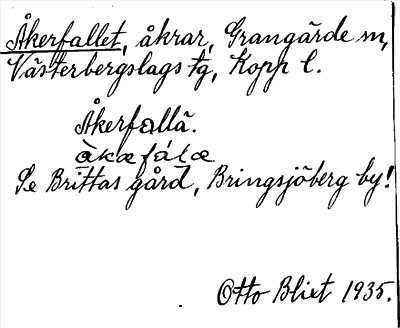 Åkerfallet, åkrar, Grangärde sn,
Västerbergslags tg, Kopp l.
Åkerfallä.
àkæfálæ
Se Brittas gård, Bringsjöberg by!
Otto Blixt 1935.